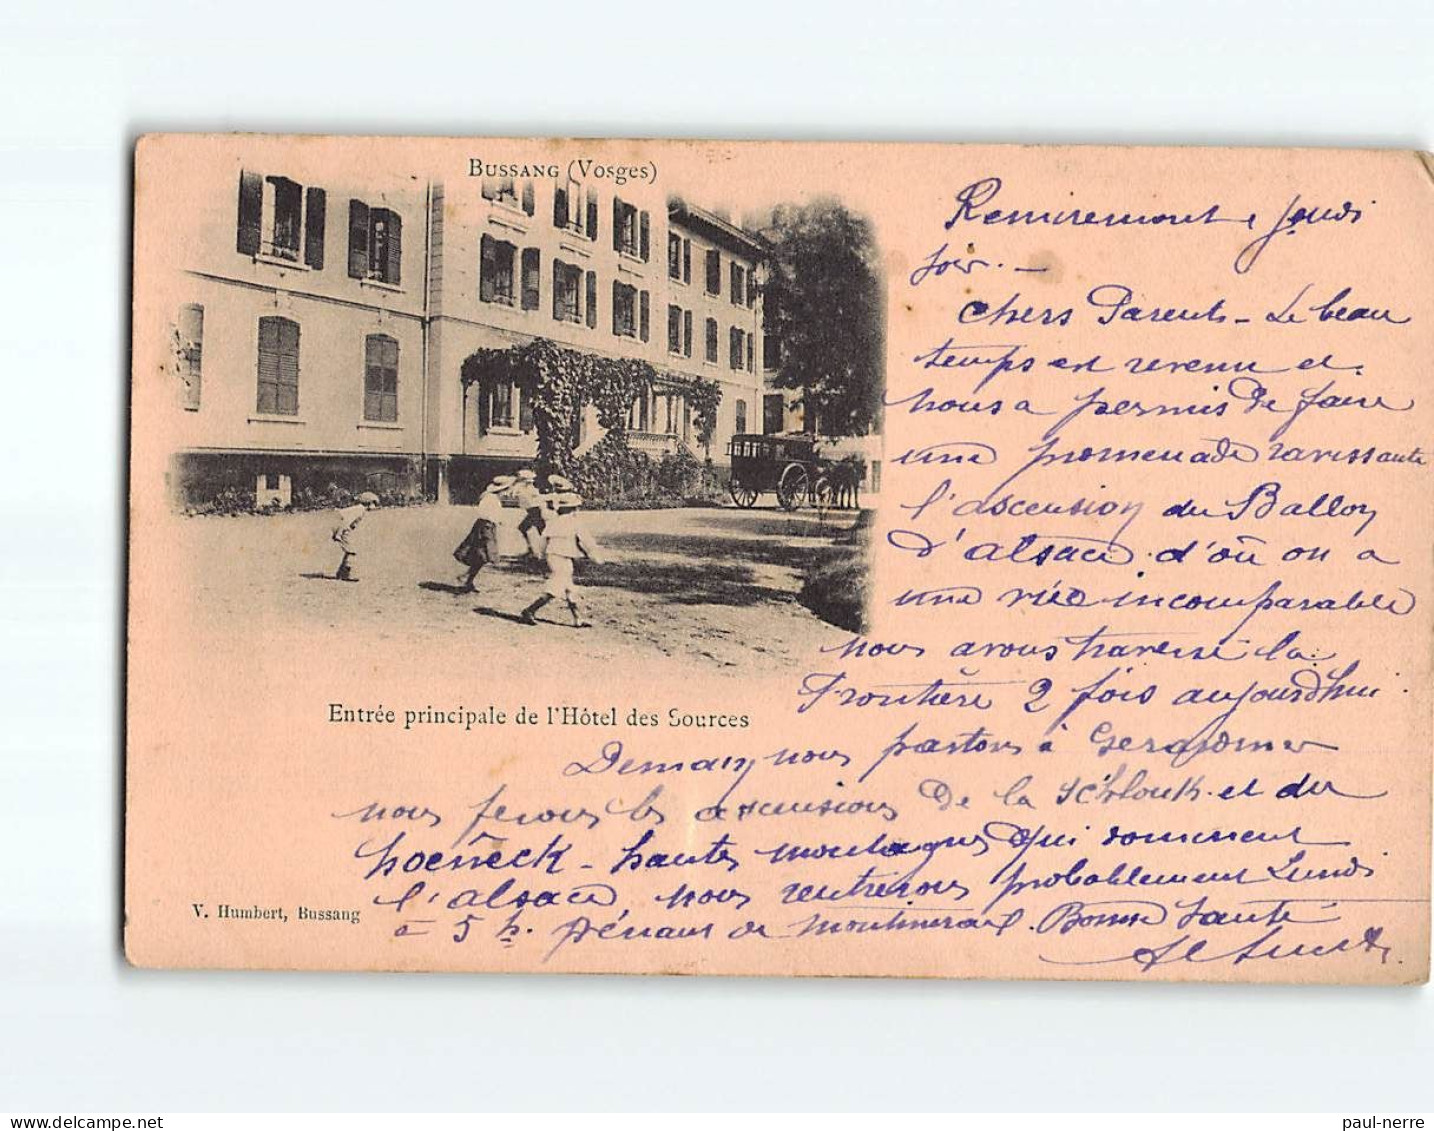 BUSSANG (Vosges)
Remiremont, jeudi
soir. -
chers Parents - Le beau
temps est revenu et
nous a permis de faire
une promenade ravissante
l'ascension du Ballon
d'alsace. d'où on a
une vue incomparable
nous avons traversé la
Frontière 2 fois aujourd'hui.
Entrée principale de l'Hôtel des Sources
Demain nous partons à Gerardmer
nous ferons les ascensions de la Schlouk et du
hoeneck - hautes montagnes qui dominent
l'alsace nous rentrerons probablement Lundi
à 5 h. venant de . Bonne Santé
V. Humbert, Bussang
paul-nerre